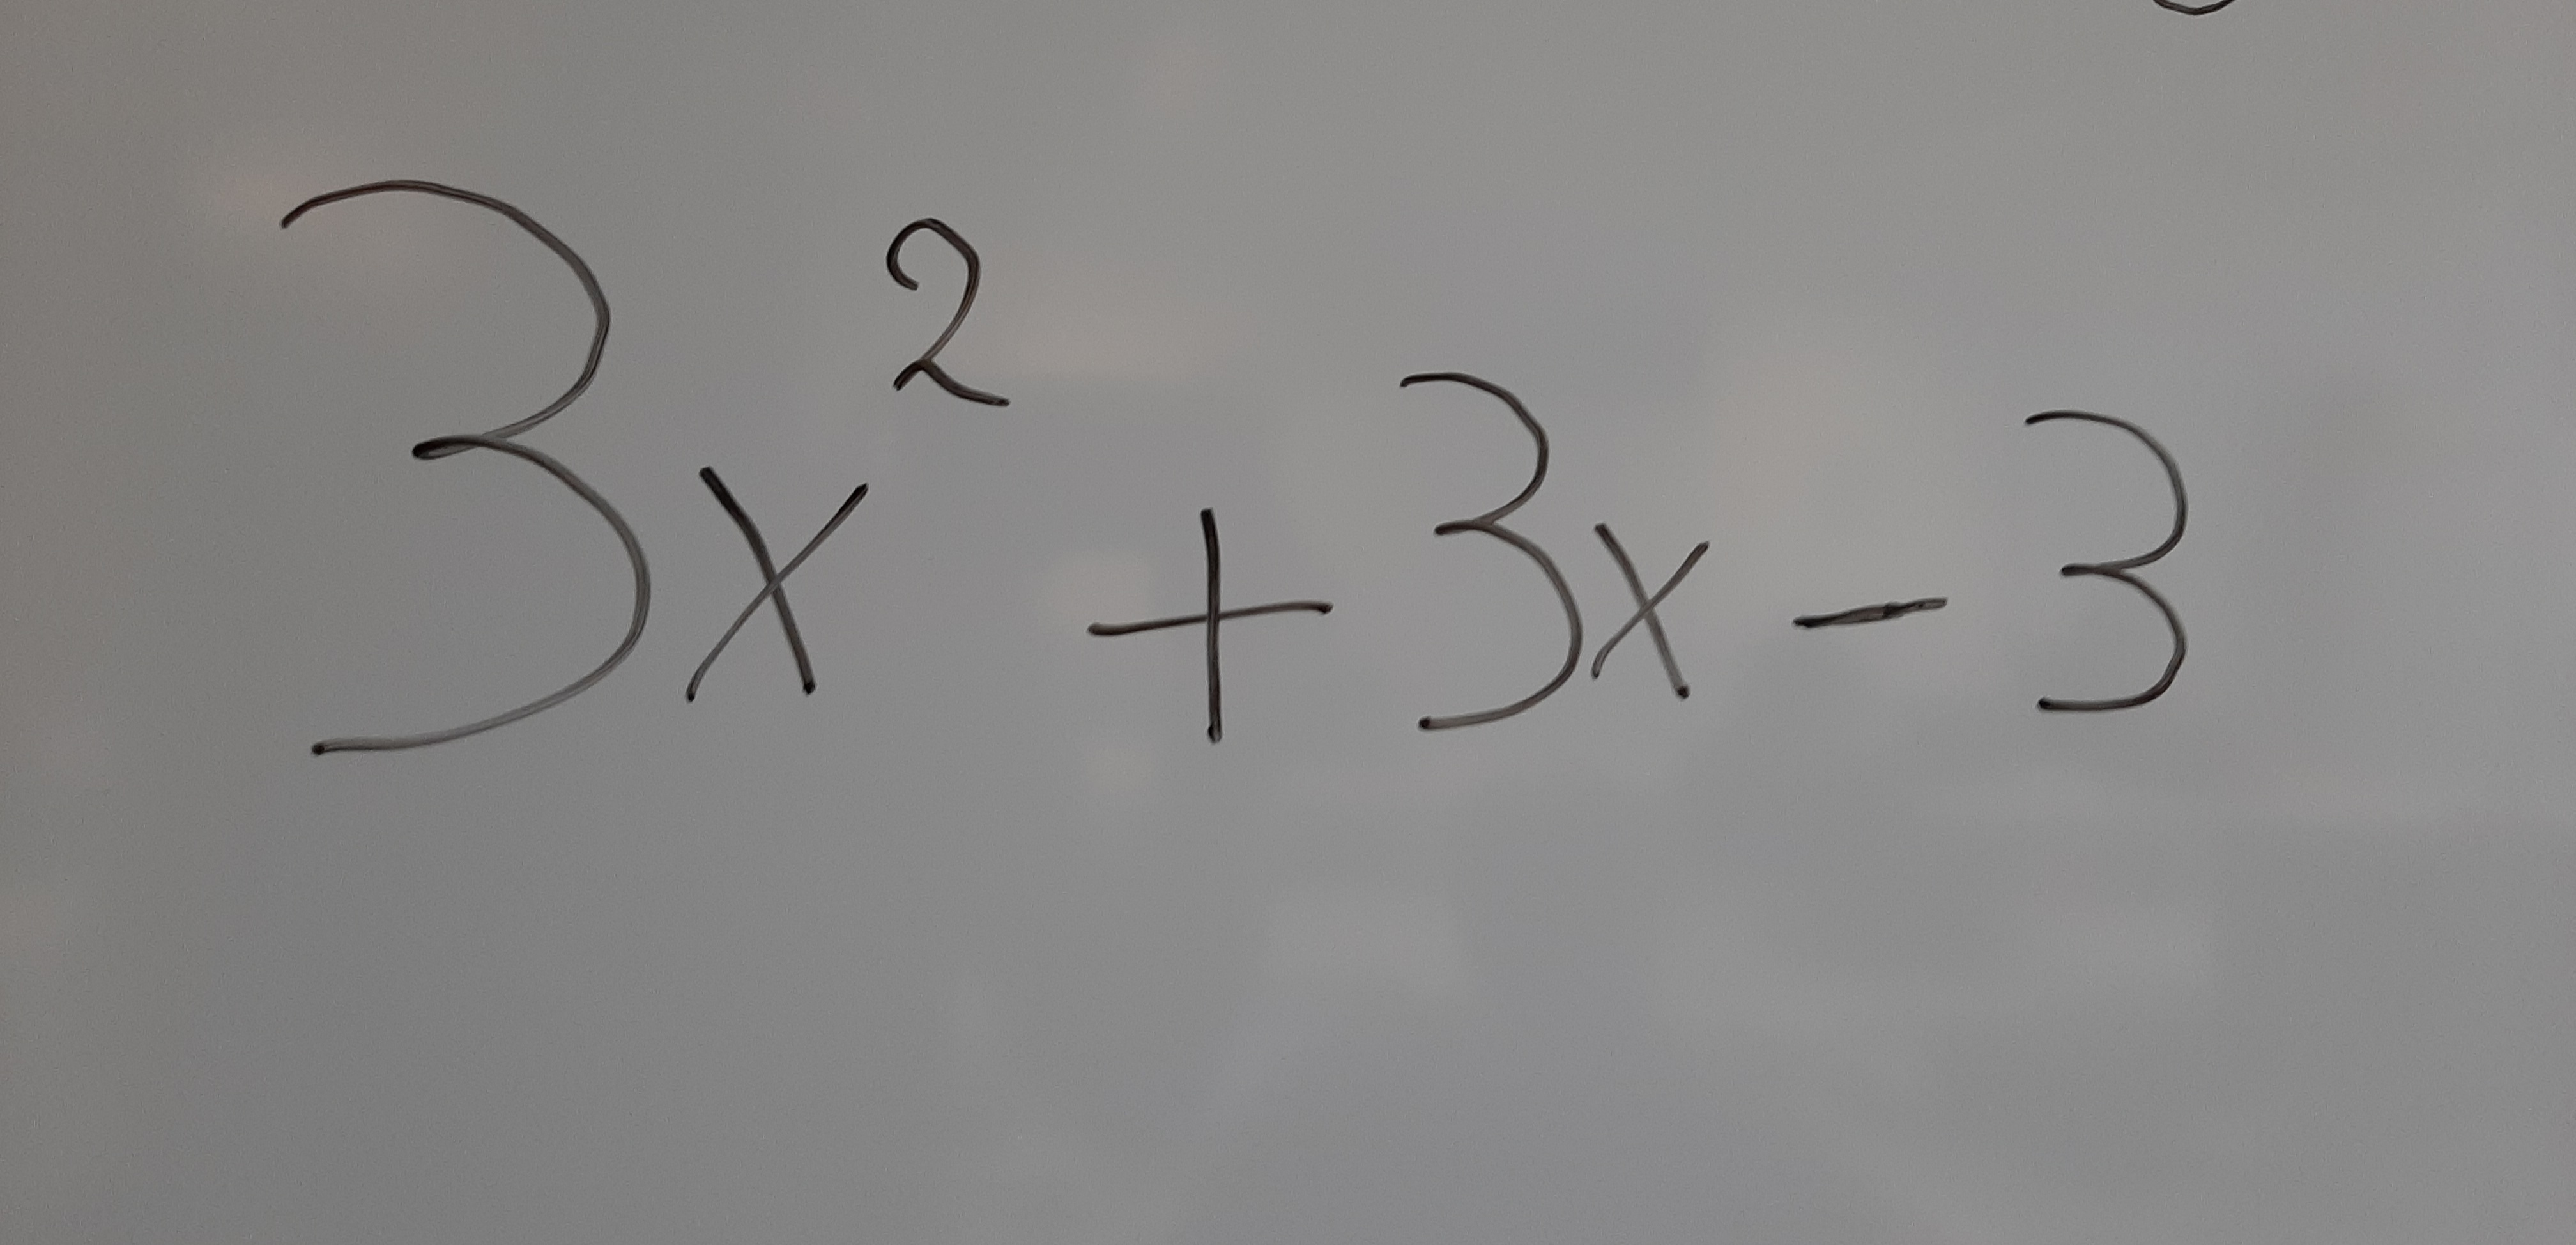 3x² + 3x - 3